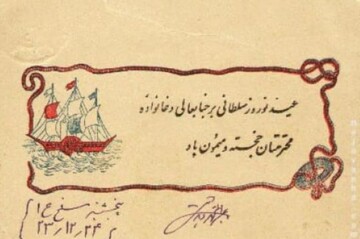 عید نوروز سلطانی بر جنابعالی و خانواده
محترمتان خجسته و میمون باد
پنجشنبه
۲۳ر۱۲ر۲۴